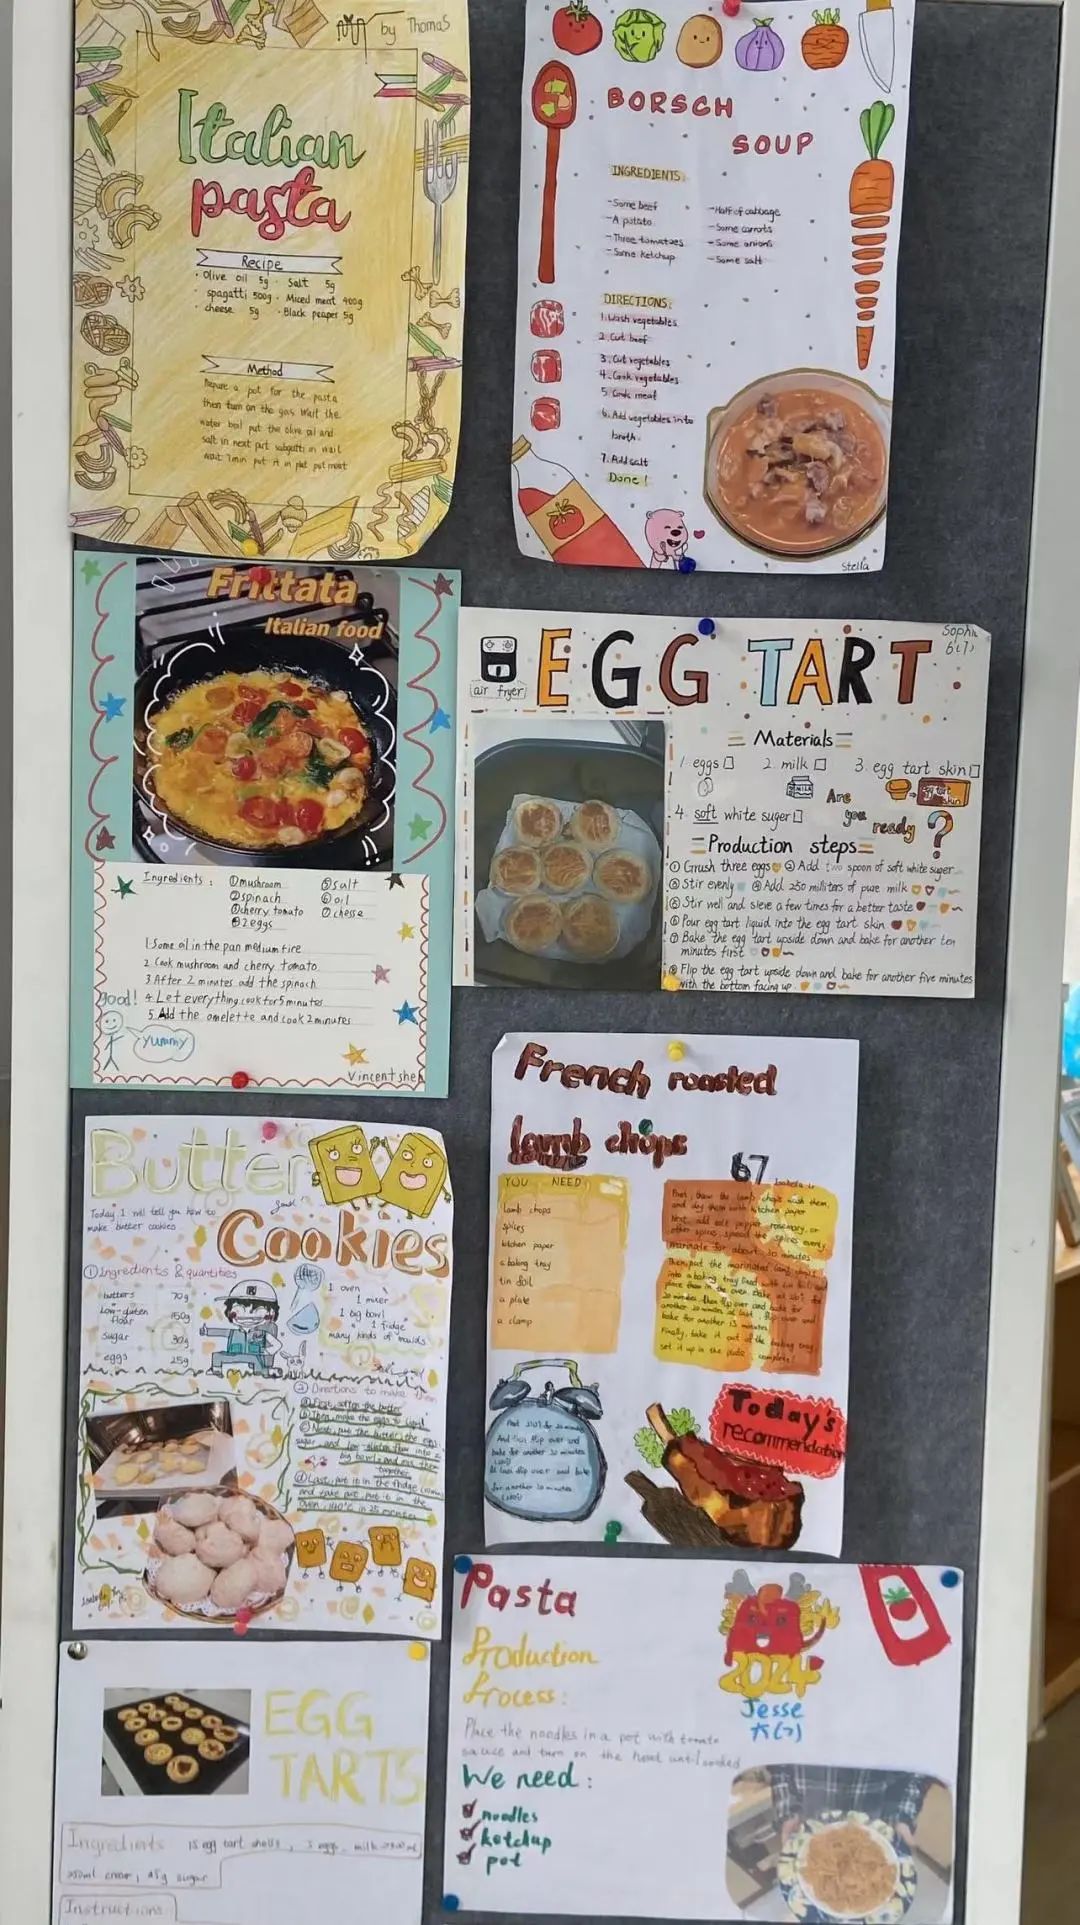 by Thomas
Italian
pasta
Recipe
· Olive oil 5g · Salt 5g
spagatti 500g · Miced meat 400g
· cheese 5g · Black peaper 5g
Method
Prepare a pot for the pasta
then turn on the gas Wait the
water boil put the olive oil and
salt in next part spagatti in wait
wait 7min put it in plat put meat
BORSCH
SOUP
INGREDIENTS:
-Some beef
-A potato
-Three tomatoes
-Some ketchup
-Half of cabbage
-Some carrots
-Some onions
-Some salt
DIRECTIONS:
1.Wash vegetables
2.Cut beef
3.Cut vegetables
4.Cook vegetables
5.Cook meat
6.Add vegetables into
broth.
7.Add salt
Done!
Stella
Frittata
Italian food
Ingredients:
①mushroom
②spinach
③cherry tomato
④2eggs
⑤salt
⑥oil
⑦chesse
1.Some oil in the pan medium fire
2.Cook mushroom and cherry tomato
3.After 2 minutes add the spinach
4.Let everything cook for 5 minutes
5.Add the omelette and cook 2 minutes
good!
Yummy
Vincent she
Sophie
6(7)
air fryer
EGG TART
Materials
1. eggs 2. milk 3. egg tart skin
MILK
egg tart skin
4. soft white suger
Are
you ready ?
Production steps
① Grush three eggs ② Add two spoon of soft white suger
③ Stir evenly ④ Add 250 mililiters of pure milk
⑤ Stir well and sieve a few times for a better taste
⑥ Pour egg tart liquid into the egg tart skin
⑦ Bake the egg tart upside down and bake for another ten
minutes first
⑧ Flip the egg tart upside down and bake for another five minutes
with the bottom facing up
Butter
Cookies
Today I will tell you how to
make butter cookies
① Ingredients & quantities
butters 70g
Low-gluten
flour 150g
sugar 30g
eggs 25g
1 oven
1 mixer
1 big bowl
1 fridge
many kinds of moulds
② Directions to make them
ⓐ First, soften the butter
ⓑ Then, make the eggs to liquid
ⓒ Next, put the butter, the egg,
sugar, and low-gluten flour into a
big bowl, and mix them
together
ⓓ Last, put it in the fridge
and take out, put it in the
oven, 140°C in 25 minutes
French roasted
lamb chops
67
YOU NEED
lamb chops
spices
kitchen paper
a baking tray
tin foil
a plate
a clamp
First, thaw the lamb chops wash them,
and dry them with kitchen paper
Next, add salt pepper, rosemary, or
other spices, spread the spices evenly
marinate for about 30 minutes
Then, put the marinated lamb chops
into a baking tray lined with tin foil and
place them in the oven. Bake at for
30 minutes then flip over and bake for
another 30 minutes at last, flip over and
bake for another 15 minutes
Finally, take it out of the baking tray,
set it up in the plate complete!
for 30 minutes
And then flip over and
bake for another 30 minutes
At last flip over and bake
for another 10 minutes
Today's
recommendation
Pasta
Production
Process:
Place the noodles in a pot with tomato
sauce and turn on the heat until cooked
We need:
noodles
ketchup
pot
2024
Jesse
六(7)
EGG
TARTS
Ingredients 15 egg tart shells, 3 eggs, milk
250ml cream, 45g sugar
Instructions